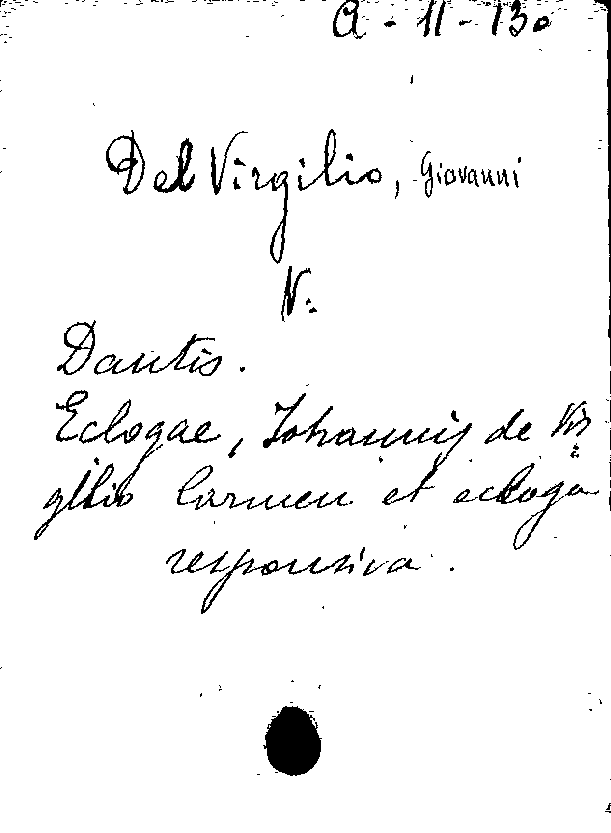 A - 11 - 130
Del Virgilio, Giovanni
V:
Dantis.
Eclogae, Johannis de Vir
gilio Carmen et ecloga
responsiva.